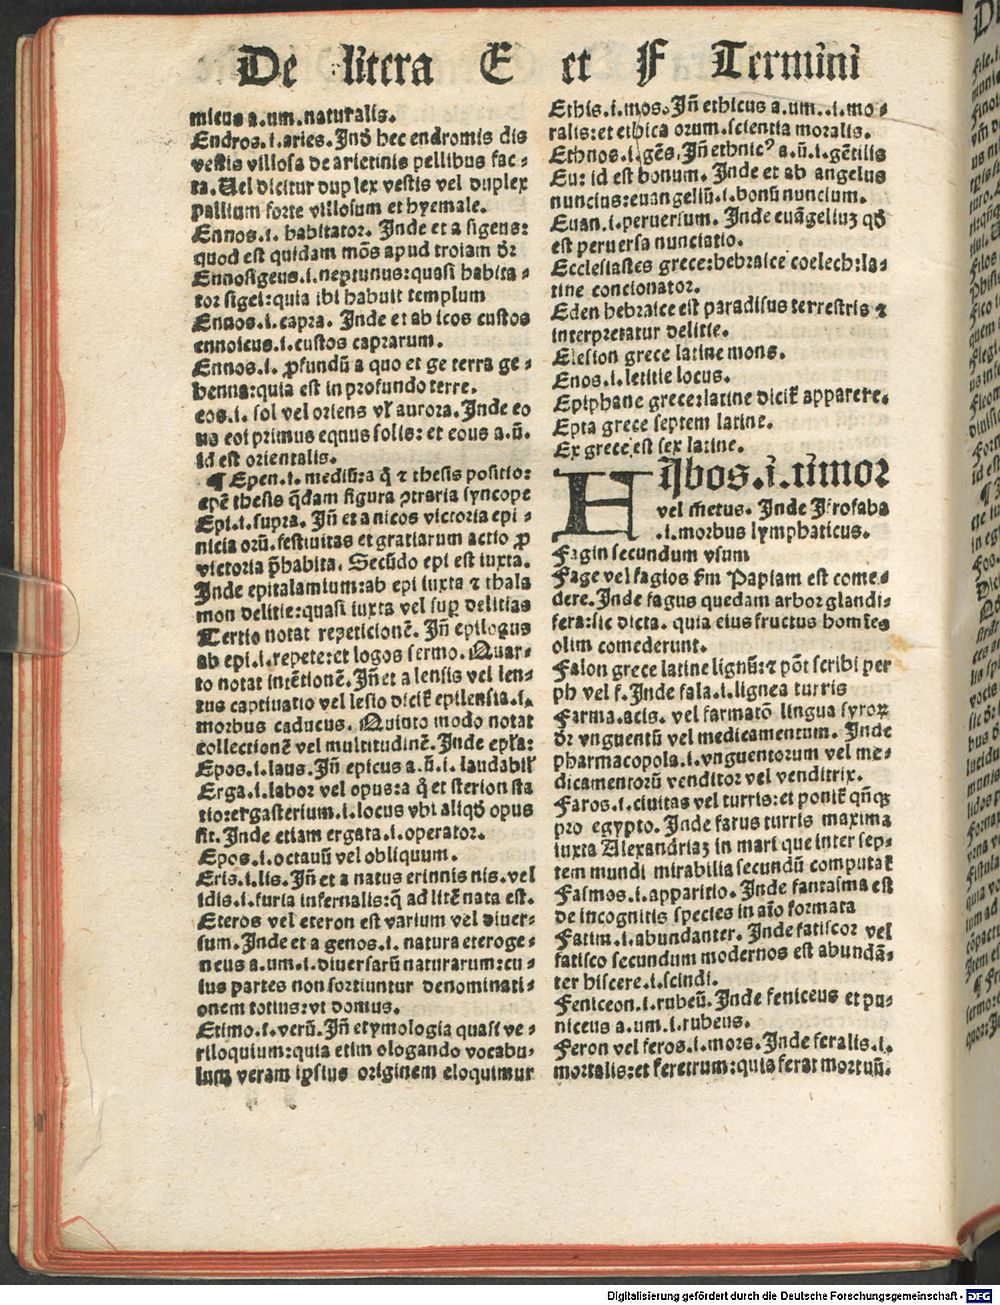 De litera E et F Termini
micus a.um.naturalis.
Endros.i.aries.Inđ hec endromis dis
vestis villosa de arietinis pellibus fac⸗
ta.Uel dicitur duplex vestis vel duplex
pallium forte villosum et hyemale.
Ennos.i. habitator. Inde et a sigeus:
quod est quidam mōs apud troiam dr̄
Ennosigeus.i.neptunus:quasi habita⸗
tor sigei:quia ibi habuit templum
Ennos.i.capra. Inde et ab icos custos
ennoicus.i.custos caprarum.
Ennos.i. ꝓfundū a quo et ge terra ge⸗
henna:quia est in profundo terre.
eos.i. sol vel oriens vl̓ aurora.Inde eo
us eoi primus equus solis: et eous a.ū.
id est orientalis.
¶ Epen.i. mediū:a q̄ ⁊ thesis positio:
epē thesis q̄dam figura ꝯtraria syncope
Epi.i.supra. Iñ et a nicos victoria epi⸗
nicia orū.festiuitas et gratiarum actio ꝓ
victoria p̄habita. Secūdo epi est iuxta.
Inde epitalamium:ab epi iuxta ⁊ thala
mon delitie:quasi iuxta vel suꝑ delitias
Tertio notat repeticionē. Iñ epilogus
ab epi.i.repete:et logos sermo. Quar⸗
to notat intētionē.Iñ et a lensis vel len⸗
tus captiuatio vel lesio dicit̄ epilensia.i.
morbus caducus. Quinto modo notat
collectionē vel multitudinē.Inde epl̄a:
Epos.i.laus.Iñ epicus a.ū.i.laudabil̓
Erga.i.labor vel opus:a q̄ et sterion sta
tio:ergasterium.i.locus vbi aliqđ opus
fit. Inde etiam ergata.i.operator.
Epos.i.octauū vel obliquum.
Eris.i.lis.Iñ et a natus erinnis nis.vel
idis.i.furia infernalis:q̄ ad litē nata est.
Eteros vel eteron est varium vel diuer⸗
sum.Inde et a genos.i. natura eteroge⸗
neus a.um.i.diuersarū naturarum:cu⸗
ius partes non sortiuntur denominati⸗
onem totius:vt domus.
Etimo.i.verū.Iñ etymologia quasi ve⸗
riloquium:quia etim ologando vocabu⸗
lum veram ipsius originem eloquimur
Ethis.i.mos.Iñ ethicus a.um..i.mo⸗
ralis:et ethica orum.scientia moralis.
Ethnos.i.gēs.Iñ ethnicꝰ a.ū.i.gētilis
Eu: id est bonum. Inde et ab angelus
nuncius:euangeliū.i.bonū nuncium.
Euan.i.peruersum. Inde euāgeliuꝫ qđ
est peruersa nunciatio.
Ecclesiastes grece:hebraice coelech:la⸗
tine concionator.
Eden hebraice est paradisus terrestris ⁊
interpretatur delitie.
Elesion grece latine mons.
Enos.i.letitie locus.
Epiphane grece:latine dicit̄ apparere.
Epta grece septem latine.
Ex grece est sex latine.
F Abos.i.timor
vel metus. Inde Frofaba
.i.morbus lymphaticus.
Fagin secundum vsum
Fage vel fagios fm̄ Papiam est come⸗
dere.Inde fagus quedam arbor glandi⸗
fera:sic dicta. quia eius fructus homīes
olim comederunt.
Falon grece latine lignū:⁊ pōt scribi per
ph vel f.Inde fala.i.lignea turris
Farma.acis. vel farmatō lingua syroꝝ
dr̄ vnguentū vel medicamentum. Inde
pharmacopola.i.vnguentorum vel me⸗
dicamentorū venditor vel venditrix.
Faros.i.ciuitas vel turris:et ponit̄ qñqꝫ
pro egypto. Inde farus turris maxima
iuxta Alexandriaꝫ in mari que inter sep⸗
tem mundi mirabilia secundū computat̄
Fasmos.i.apparitio. Inde fantasma est
de incognitis species in aīo formata
Fatim.i.abundanter. Inde fatiscor vel
fatisco secundum modernos est abundā⸗
ter hiscere.i.scindi.
Feniceon.i.rubeū. Inde feniceus et pu⸗
niceus a.um.i.rubeus.
Feron vel feros.i.mors.Inde feralis.i.
mortalis:et feretrum:quia ferat mortuū.
Digitalisierung gefördert durch die Deutsche Forschungsgemeinschaft - DFG